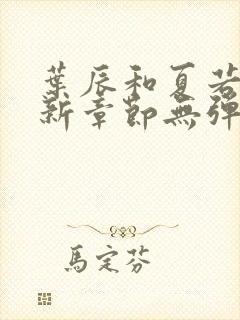 葉辰和夏若
新章節無彈
馬定芬